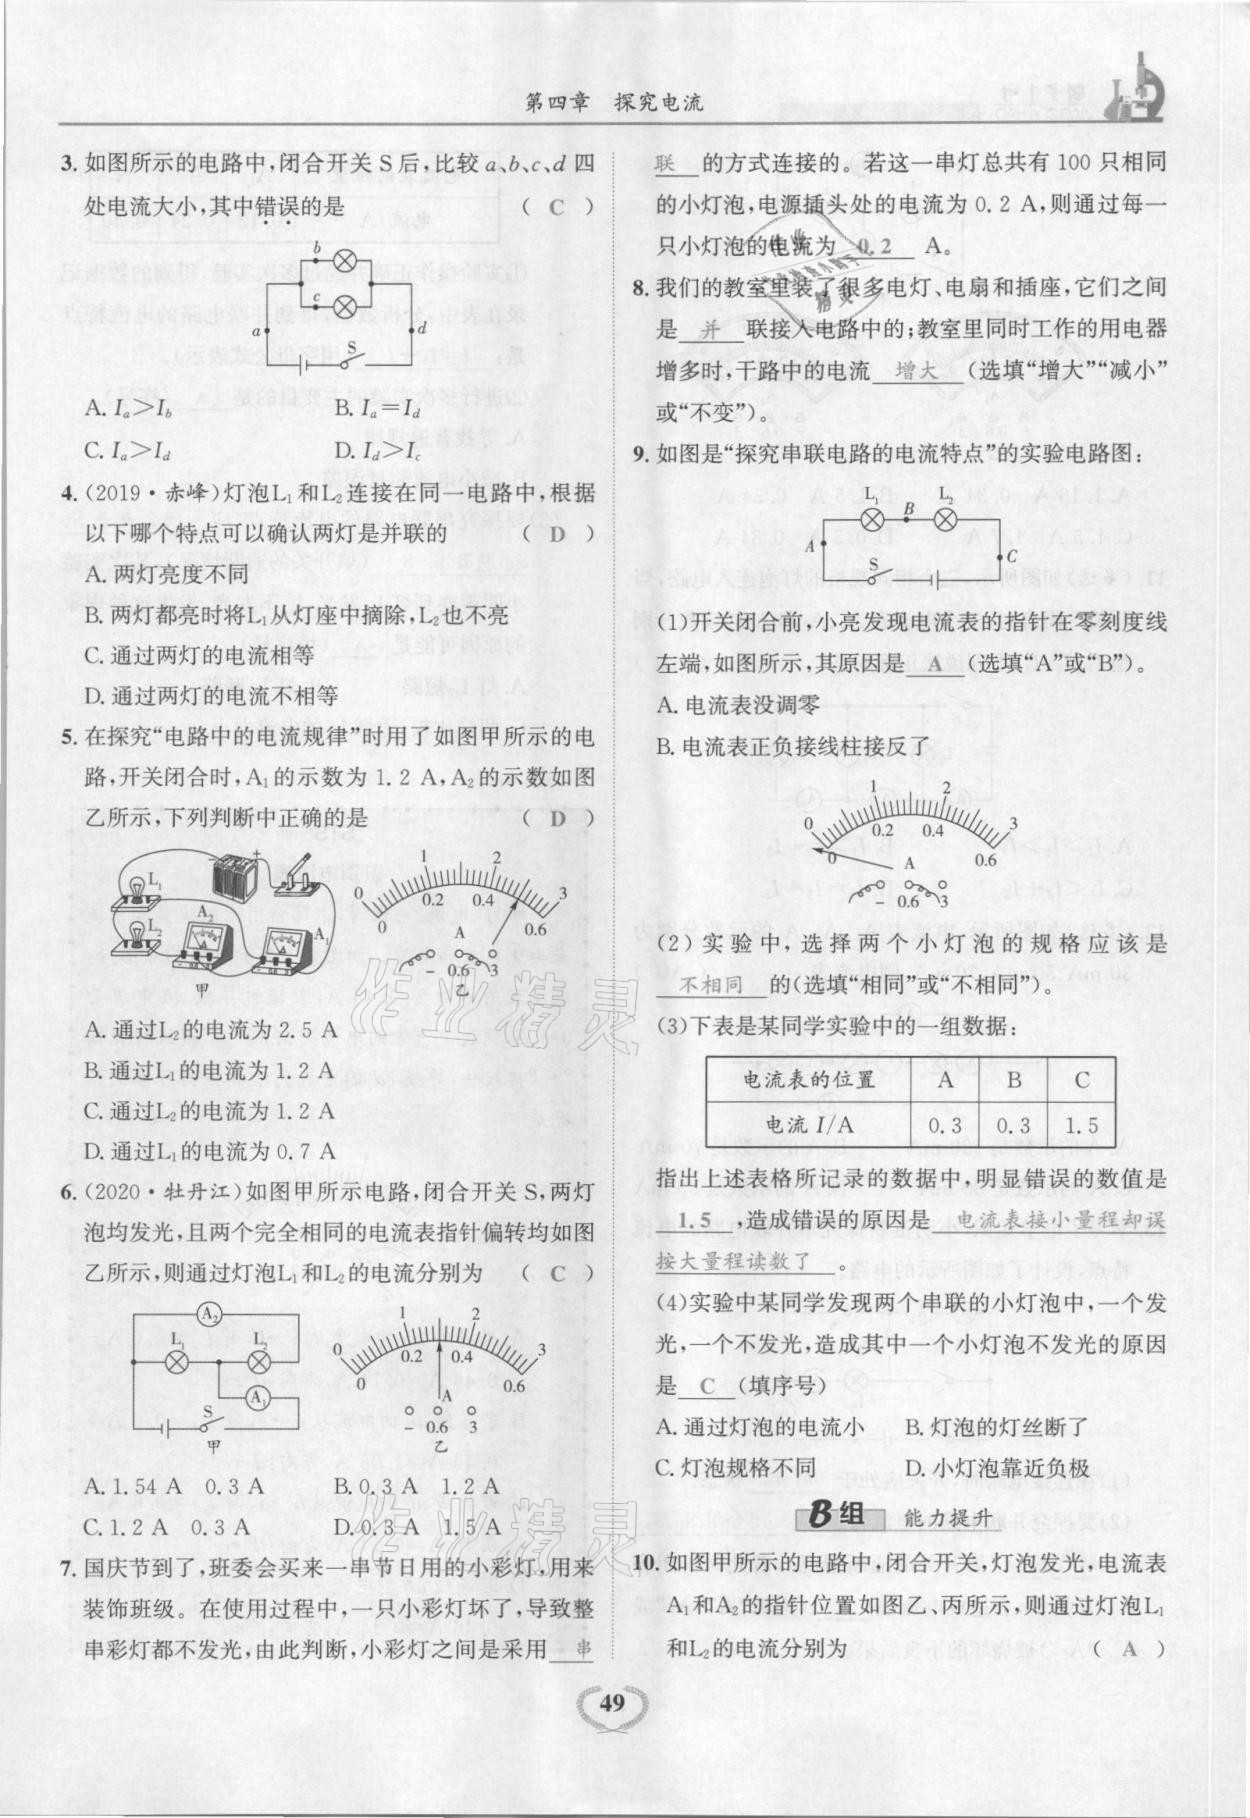 第四章 探究电流
3. 如图所示的电路中,闭合开关S后,比较a、b、c、d四
处电流大小,其中错误的是 ( C )
b
c
a
d
S
A. Ia>Ib B. Ia=Id
C. Ia>Id D. Id>Ic
4. (2019·赤峰)灯泡L1和L2连接在同一电路中,根据
以下哪个特点可以确认两灯是并联的 ( D )
A. 两灯亮度不同
B. 两灯都亮时将L1从灯座中摘除,L2也不亮
C. 通过两灯的电流相等
D. 通过两灯的电流不相等
5. 在探究“电路中的电流规律”时用了如图甲所示的电
路,开关闭合时,A1的示数为1.2 A,A2的示数如图
乙所示,下列判断中正确的是 ( D )
L1 L2 A2 A1 - +
甲
0 1 2 3
0 0.2 0.4 0.6
A
- 0.6 3
乙
A. 通过L2的电流为2.5 A
B. 通过L1的电流为1.2 A
C. 通过L2的电流为1.2 A
D. 通过L1的电流为0.7 A
6. (2020·牡丹江)如图甲所示电路,闭合开关S,两灯
泡均发光,且两个完全相同的电流表指针偏转均如图
乙所示,则通过灯泡L1和L2的电流分别为 ( C )
A2
L1 L2
A1
S
甲
0 1 2 3
0 0.2 0.4 0.6
A
- 0.6 3
乙
A. 1.54 A 0.3 A B. 0.3 A 1.2 A
C. 1.2 A 0.3 A D. 0.3 A 1.5 A
7. 国庆节到了,班委会买来一串节日用的小彩灯,用来
装饰班级。在使用过程中,一只小彩灯坏了,导致整
串彩灯都不发光,由此判断,小彩灯之间是采用 串
联 的方式连接的。若这一串灯总共有100只相同
的小灯泡,电源插头处的电流为0.2 A,则通过每一
只小灯泡的电流为 0.2 A。
8. 我们的教室里装了很多电灯、电扇和插座,它们之间
是 并 联接入电路中的;教室里同时工作的用电器
增多时,干路中的电流 增大 (选填“增大”“减小”
或“不变”)。
9. 如图是“探究串联电路的电流特点”的实验电路图:
L1 B L2
A
C
S
(1)开关闭合前,小亮发现电流表的指针在零刻度线
左端,如图所示,其原因是 A (选填“A”或“B”)。
A. 电流表没调零
B. 电流表正负接线柱接反了
0 1 2 3
0 0.2 0.4 0.6
A
- 0.6 3
(2)实验中,选择两个小灯泡的规格应该是
不相同 的(选填“相同”或“不相同”)。
(3)下表是某同学实验中的一组数据:
电流表的位置 A B C
电流 I/A 0.3 0.3 1.5
指出上述表格所记录的数据中,明显错误的数值是
1.5 ,造成错误的原因是 电流表接小量程却误
按大量程读数了 。
(4)实验中某同学发现两个串联的小灯泡中,一个发
光,一个不发光,造成其中一个小灯泡不发光的原因
是 C (填序号)
A. 通过灯泡的电流小 B. 灯泡的灯丝断了
C. 灯泡规格不同 D. 小灯泡靠近负极
B组 能力提升
10. 如图甲所示的电路中,闭合开关,灯泡发光,电流表
A1和A2的指针位置如图乙、丙所示,则通过灯泡L1
和L2的电流分别为 ( A )
49
作业精灵
作业精灵